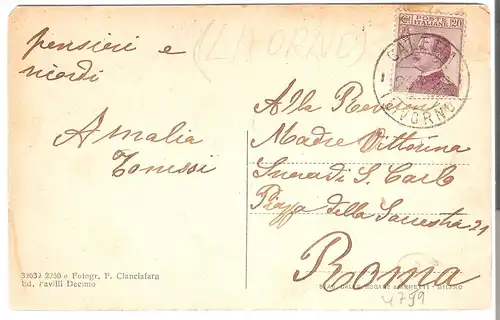 pensieri e
ricordi
Amalia
(LIVORNO)
POSTE ITALIANE 20
LIVORNO
Alla Reverenda
Madre Vittorina
Suore di S. Carlo
Piazza della
21
Roma
4799
32639-2260 e Fotogr. F. Cianciafara
Ed. Favilli Decimo
MILANO